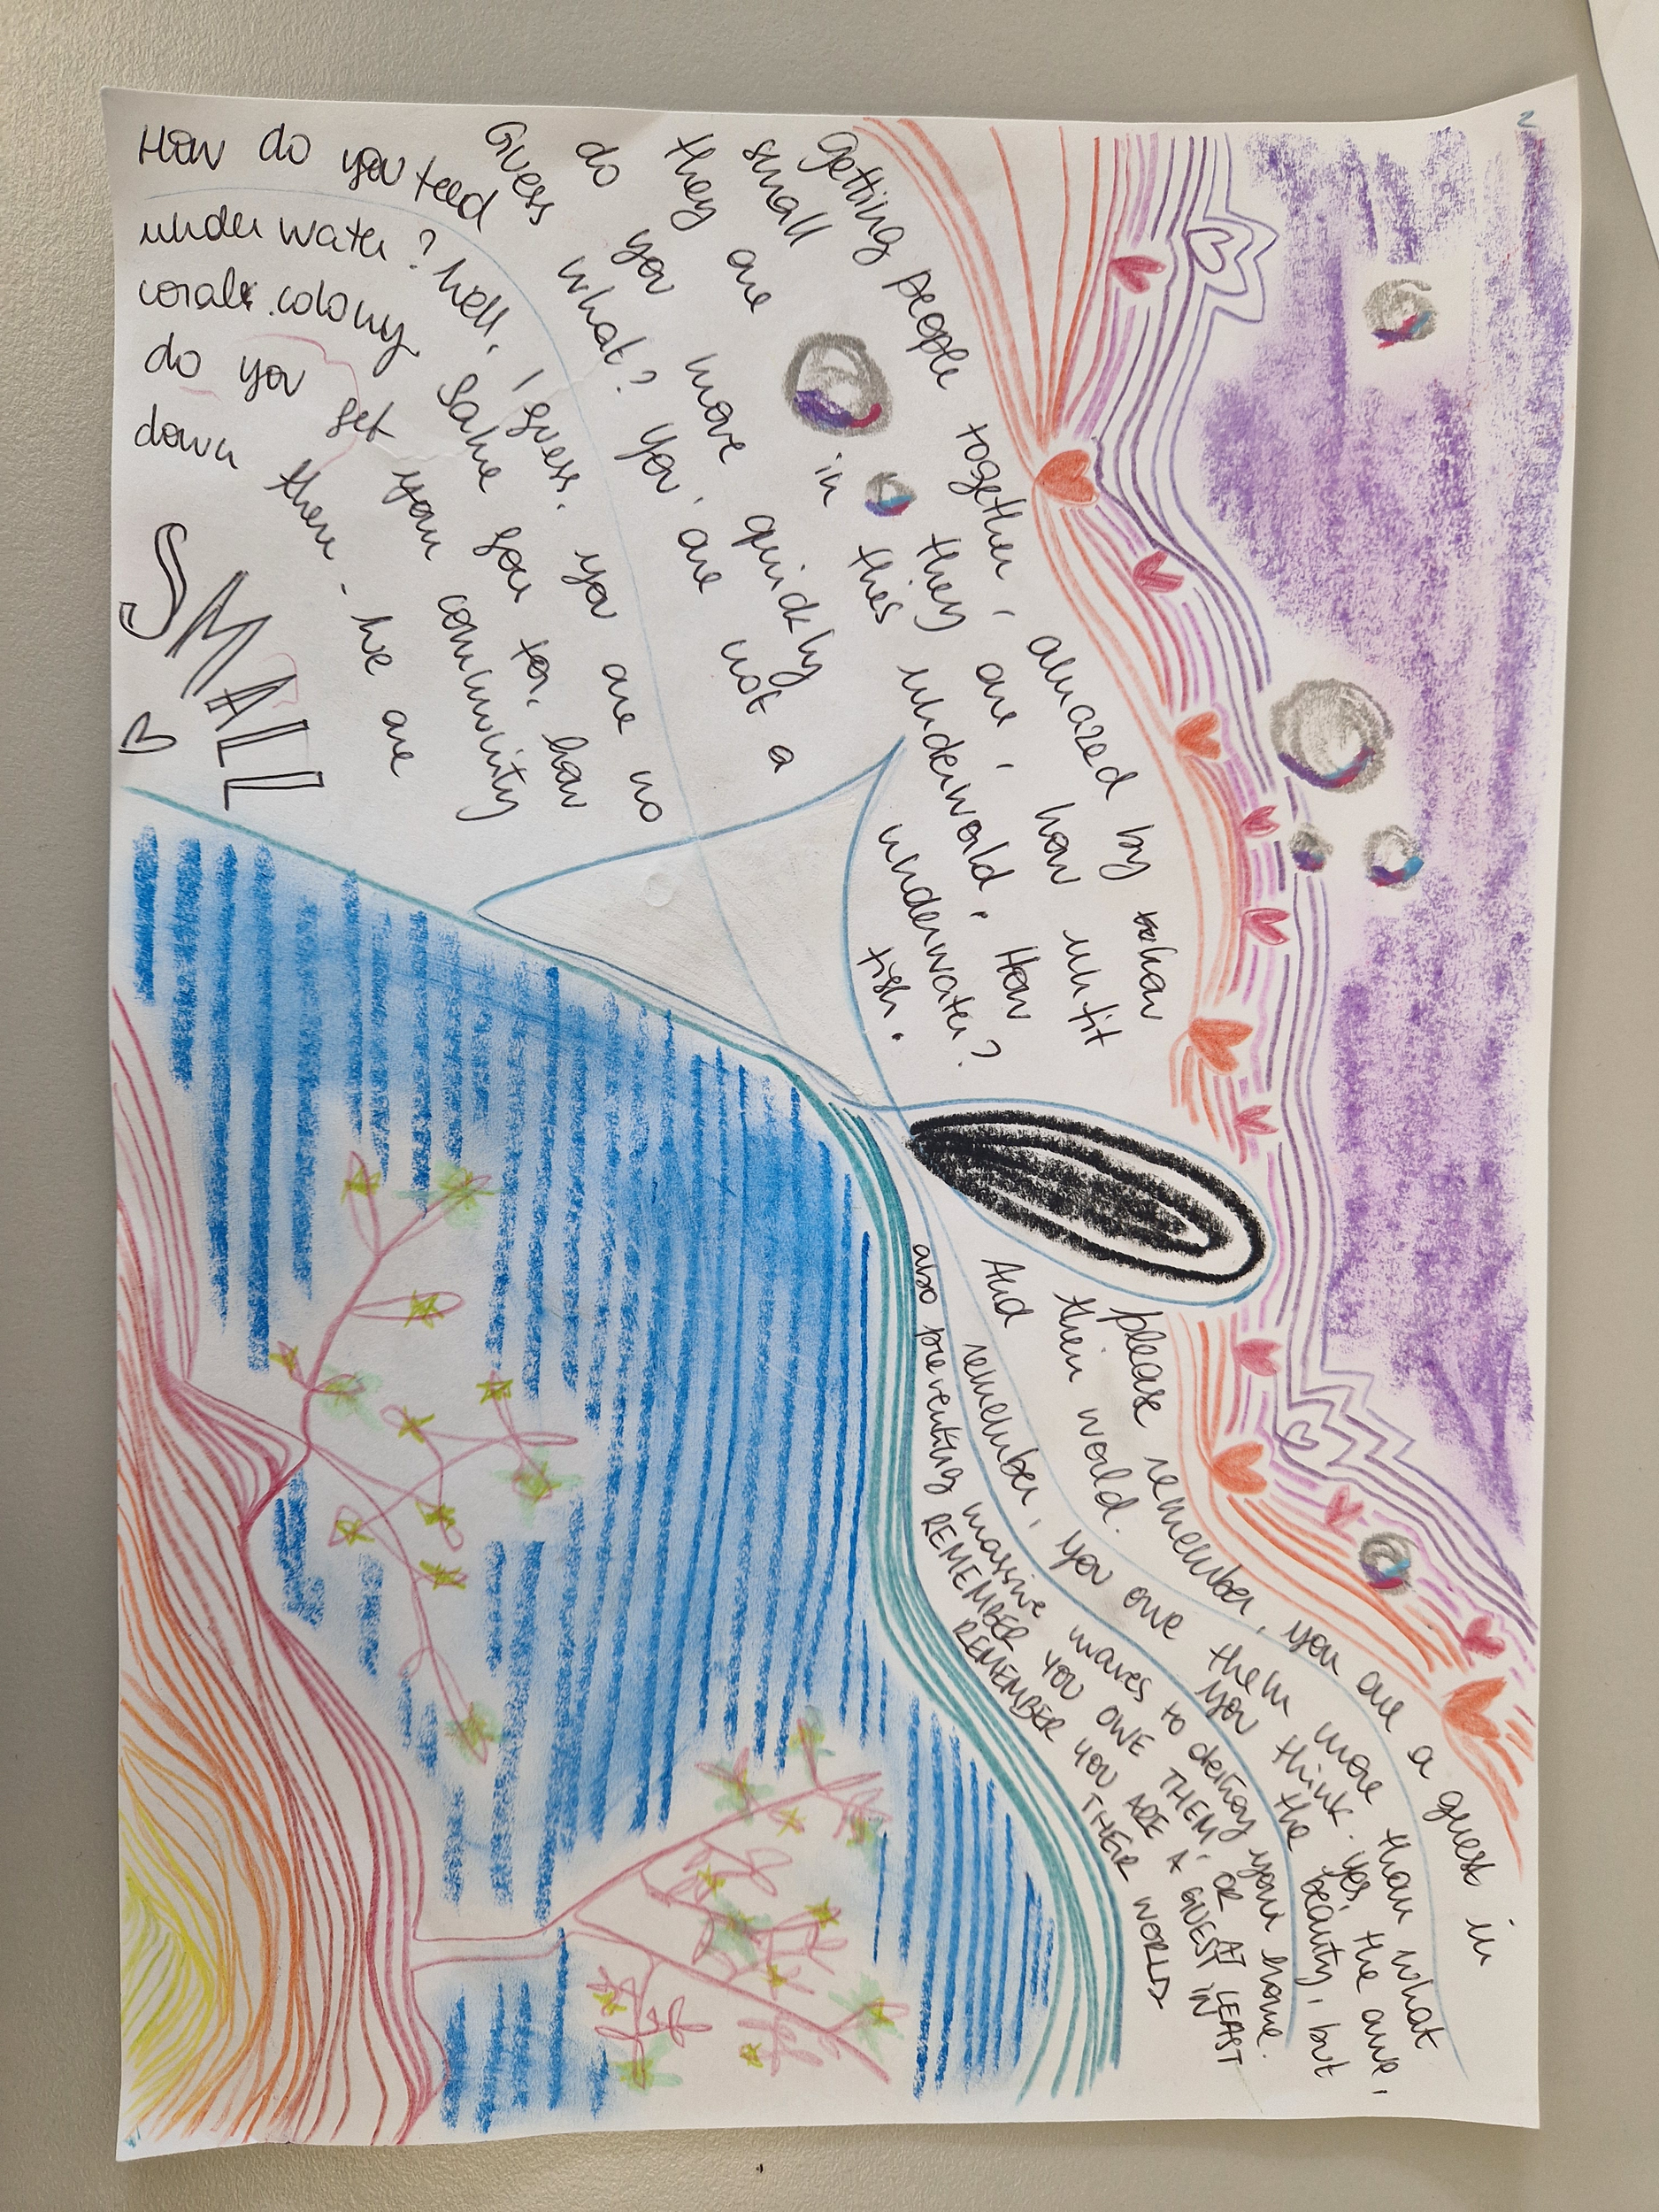 Getting people together, amazed by how
small they are, how unfit
they are in this underworld. How
do you move quickly underwater?
Guess what? You are not a fish.
How do you feed
underwater? Well, I guess. you are no
corals colony. Same goes for, how
do you get your community
down there. We are
SMALL
please remember, you are a guest in
their world.
And remember, you owe them more than what
you think. Yes, the awe,
the beauty, but
also preventing massive waves to destroy your home.
REMEMBER YOU OWE THEM, OR AT LEAST
REMEMBER YOU ARE A GUEST IN
THEIR WORLD